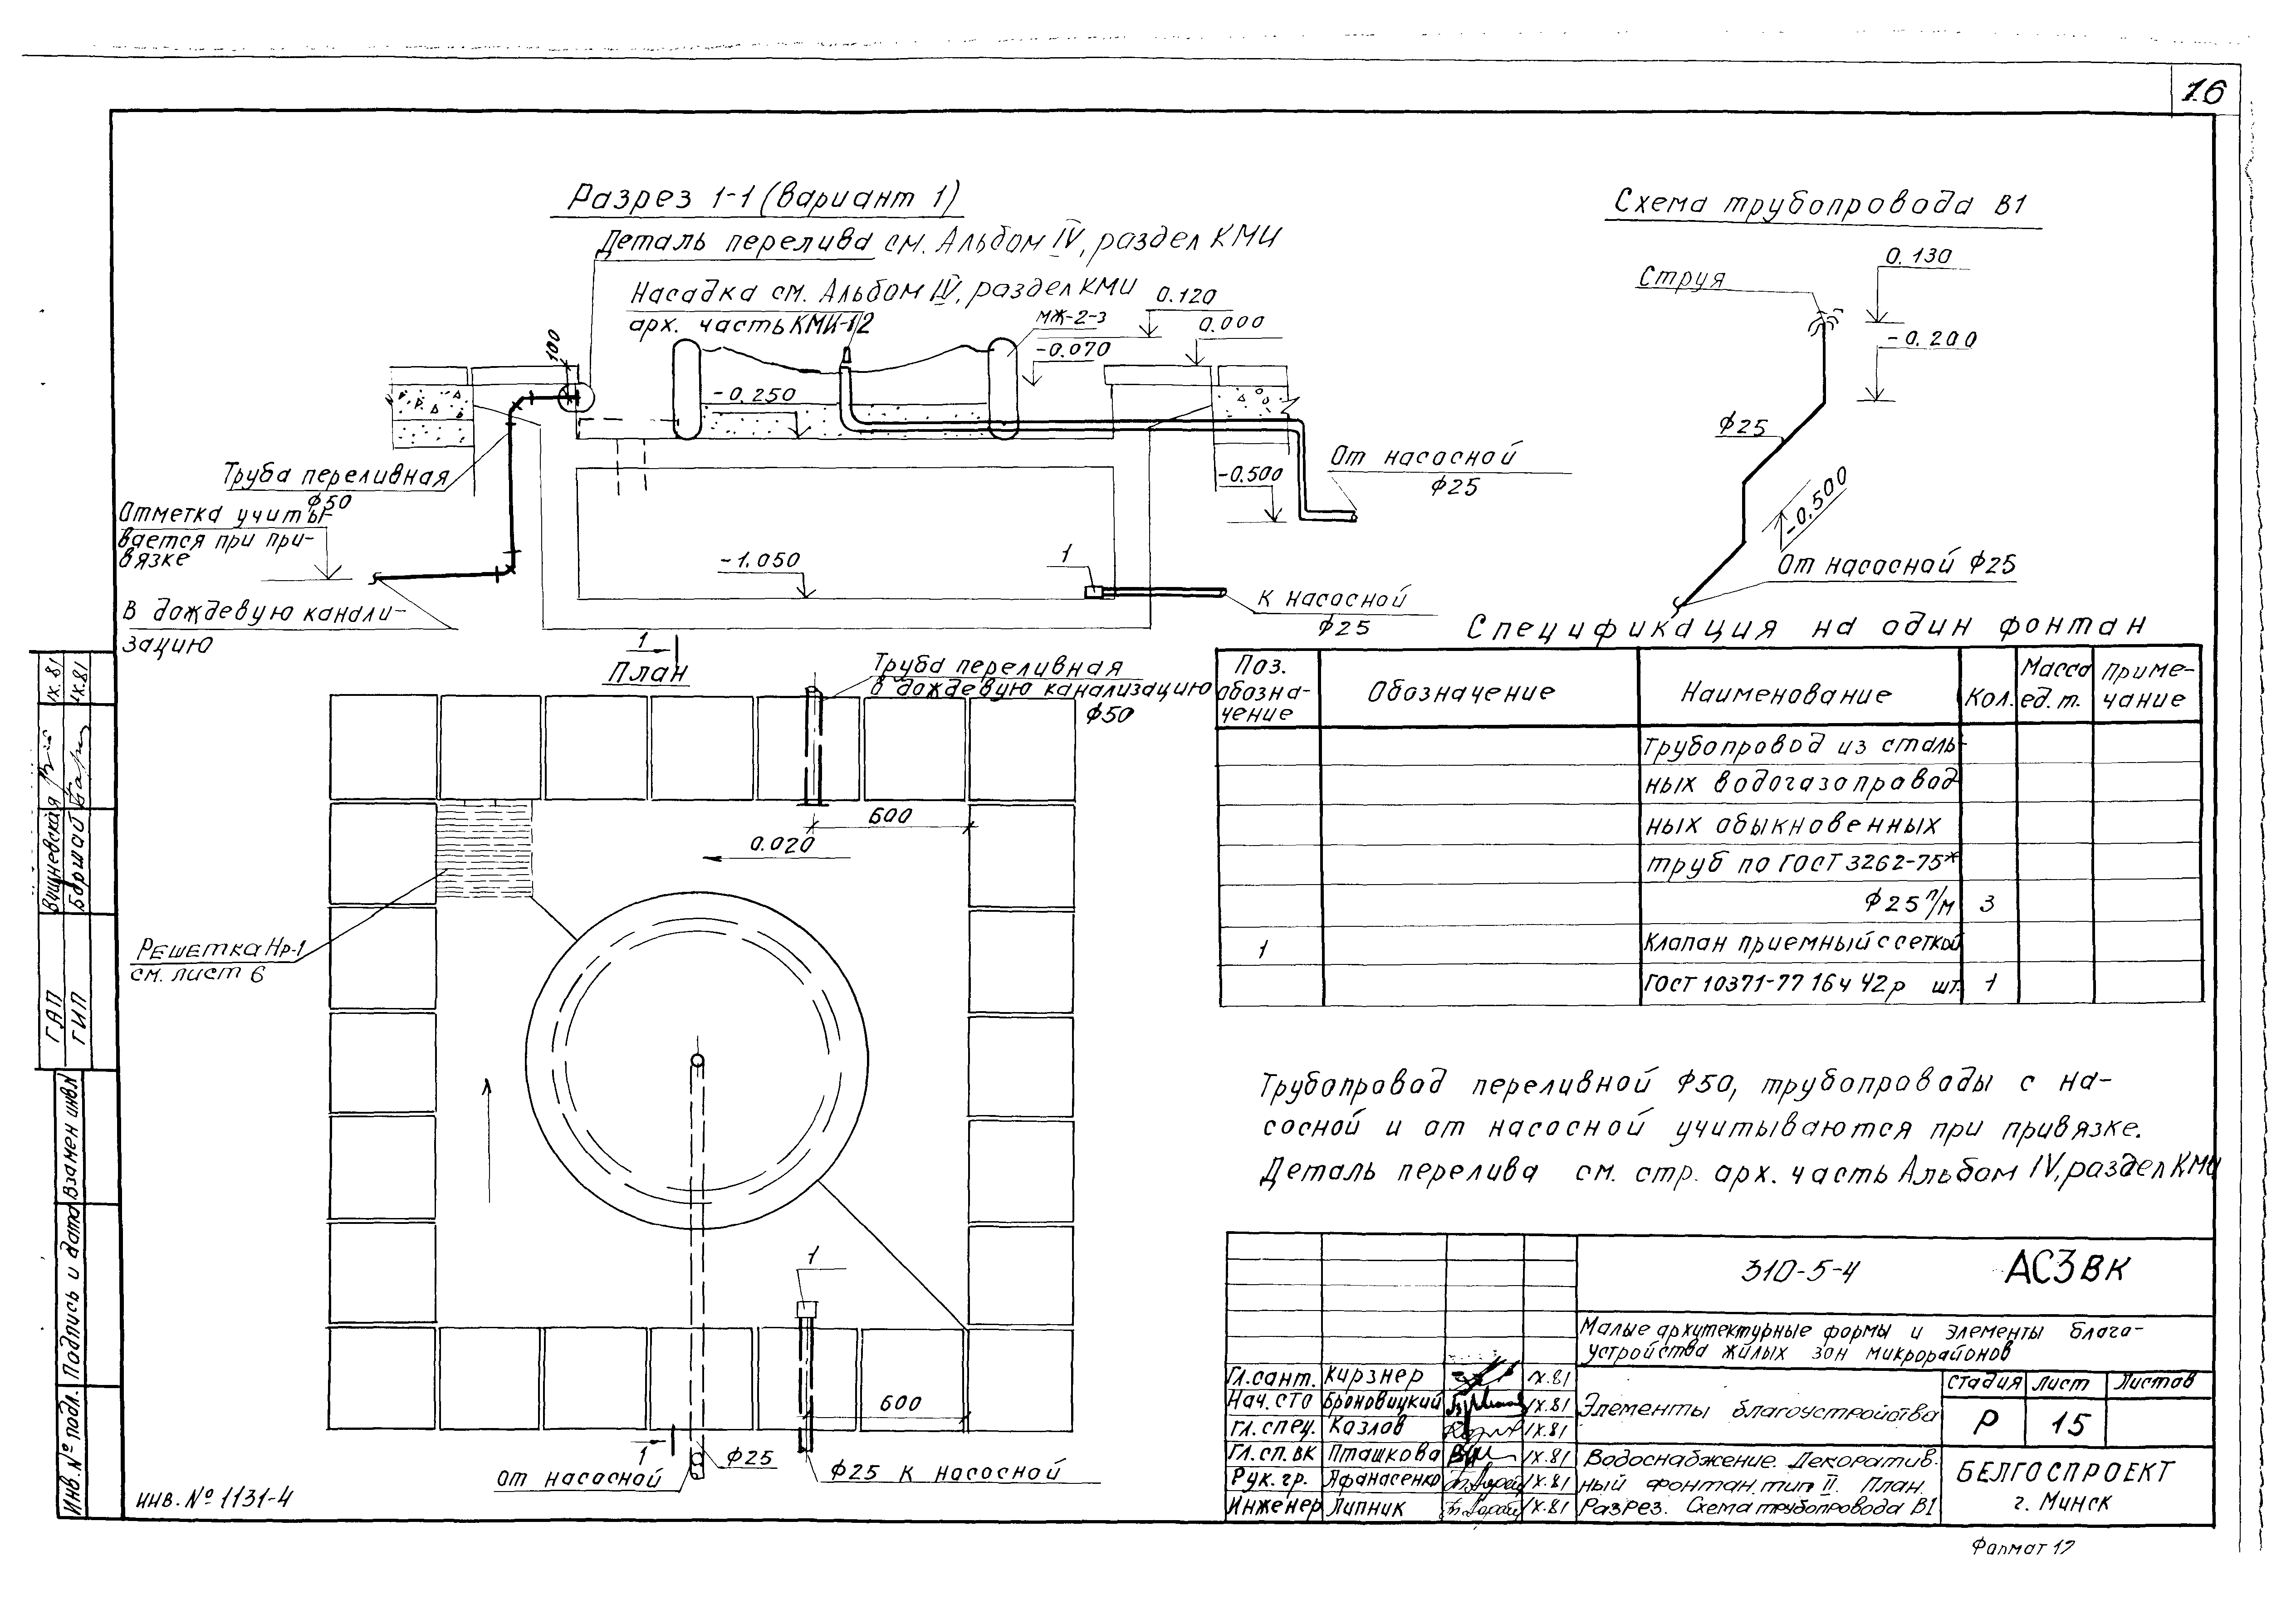 16
Разрез 1-1 (вариант 1)
Деталь перелива см. Альбом IV, раздел КМИ
Насадка см. Альбом IV, раздел КМИ
арх. часть КМИ-12
МЖ-2-3
0.120
0.000
-0.070
100
-0.250
Труба переливная
ф50
Отметка учиты-
вается при при-
вязке
В дождевую канали-
зацию
-1.050
1
-0.500
От насосной
ф25
К насосной
ф25
Схема трубопровода В1
Струя
0.130
-0.200
ф25
-0.500
От насосной ф25
1
План
Труба переливная
в дождевую канализацию
ф50
600
0.020
Решетка Нр-1
см. лист 6
1
600
1
ф25
от насосной
ф25 к насосной
Спецификация на один фонтан
Поз. обозна-чение
Обозначение
Наименование
Кол.
Масса ед. т.
Приме-чание
Трубопровод из сталь-
ных водогазопровод
ных обыкновенных
труб по ГОСТ 3262-75*
ф25 п/м 3
1 Клапан приемный с сеткой
ГОСТ 10371-77 16ч 42р шт. 1
Трубопровод переливной ф50, трубопроводы с на-
сосной и от насосной учитываются при привязке.
Деталь перелива см. стр. арх. часть Альбом IV, раздел КМИ
310-5-4 АС3ВК
Малые архитектурные формы и элементы благо-
устройства жилых зон микрорайонов
Гл.сант. Кирзнер IX.81
Нач. СТО Броновицкий IX.81
Гл. спец. Козлов IX.81
Гл. сп. ВК Пташкова IX.81
Рук. гр. Афанасенко IX.81
Инженер Липник IX.81
Элементы благоустройства
Стадия Лист Листов
Р 15
Водоснабжение. Декоратив.
ный фонтан тип II. План.
Разрез. Схема трубопровода В1
БЕЛГОСПРОЕКТ
г. Минск
Формат 12
инв. № 1131-4
ГАП Вишневская IX.81
ГИП IX.81
Взамен инв.№
Подпись и дата
Инв. № подл.